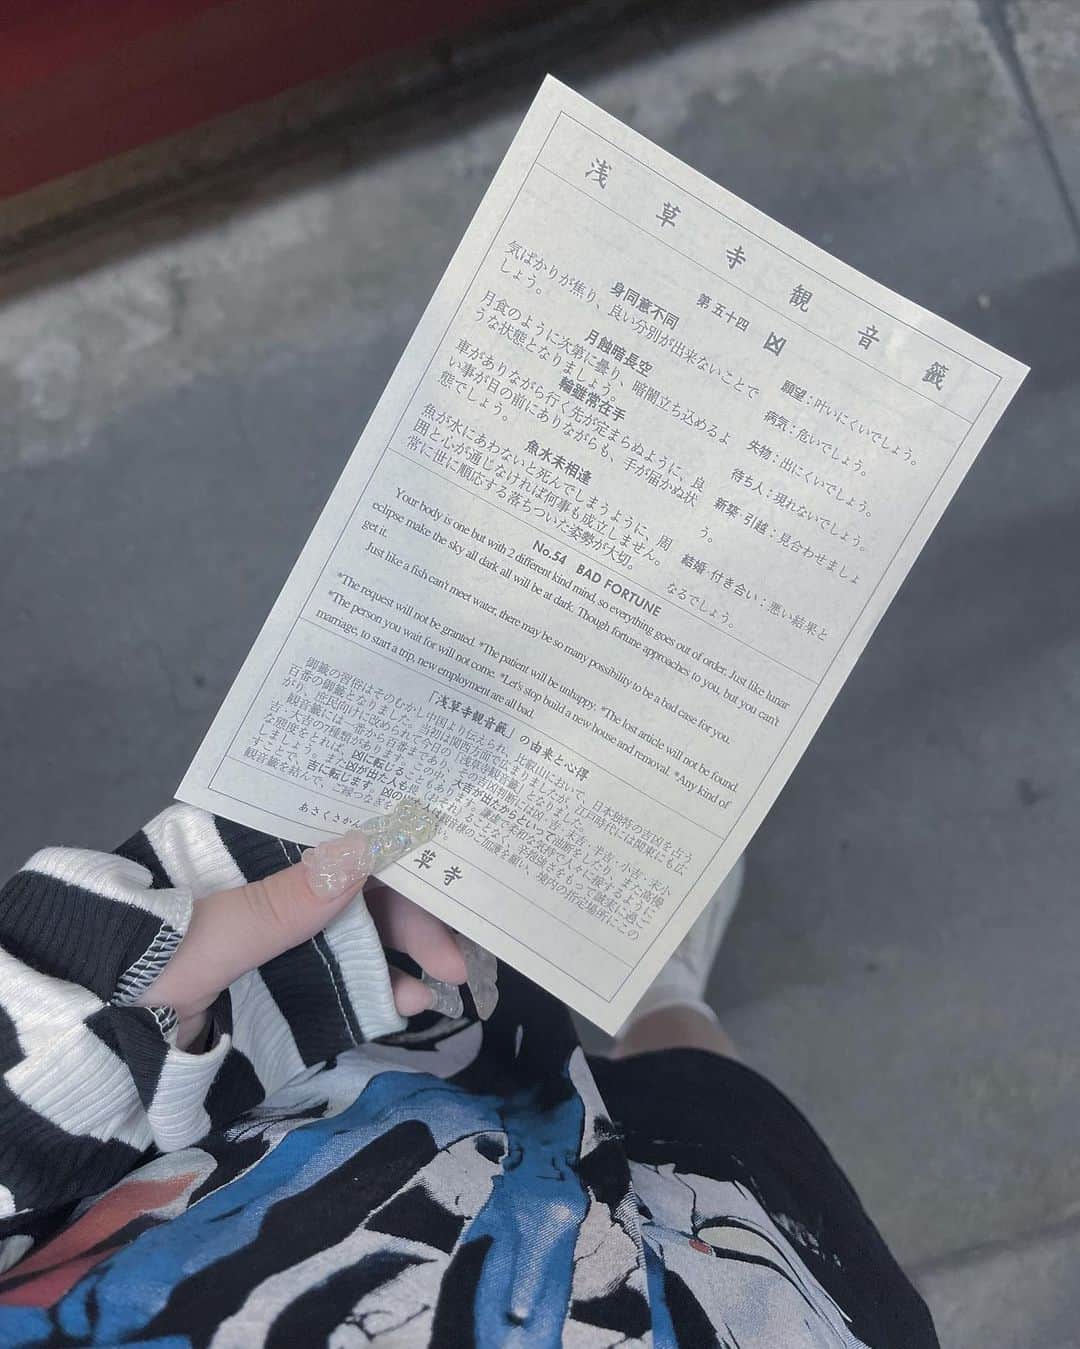 浅草寺観音籤
第五十四 凶
身同意不同
気ばかりが焦り、良い分別が出来ないことで
しょう。
月蝕暗長空
月食のように次第に曇り、暗闇立ち込めるよ
うな状態となりましょう。
輪雖常在手
車がありながら行く先が定まらぬように、良
い事が目の前にありながらも、手が届かぬ状
態でしょう。
魚水未相逢
魚が水にあわないと死んでしまうように、周
囲と心が通じなければ何事も成立しません。
常に世に順応する落ちついた姿勢が大切。
願望：叶いにくいでしょう。
病気：危いでしょう。
失物：出にくいでしょう。
待ち人：現れないでしょう。
新築・引越：見合わせましょ
う。
結婚・付き合い：悪い結果と
なるでしょう。
No.54 BAD FORTUNE
Your body is one but with 2 different kind mind, so everything goes out of order. Just like lunar
eclipse make the sky all dark all will be at dark. Though fortune approaches to you, but you can't
get it.
Just like a fish can't meet water, there may be so many possibility to be a bad case for you.
*The request will not be granted. *The patient will be unhappy. *The lost article will not be found.
*The person you wait for will not come. *Let's stop build a new house and removal. *Any kind of
marriage, to start a trip, new employment are all bad.
「浅草寺観音籤」の由来と心得
御籤の習俗はそのむかし中国より伝えられ、比叡山において、日本独特の吉凶を占う
百番の御籤となりました。当初は関西方面で広まりましたが、江戸時代には関東にも広
がり、庶民向けに改められて今日の「浅草寺観音籤」となりました。
観音籤には一番から百番まであり、その吉凶判断には凶・吉・末吉・半吉・小吉・末小
吉・大吉の7種類があります。この中、大吉が出たからといって油断をしたり、また高慢
な態度をとれば、凶に転じることもあります。謙虚で柔和な気持で人々に接するように
しましょう。また凶が出た人も
すことで、吉に転じます。凶の
観音籤を結んで、ご縁つなぎを
れることなく、辛抱強さをもって誠実に過ご
観音様のご加護を願い、境内の指定場所にこの
あさくさかん
草寺